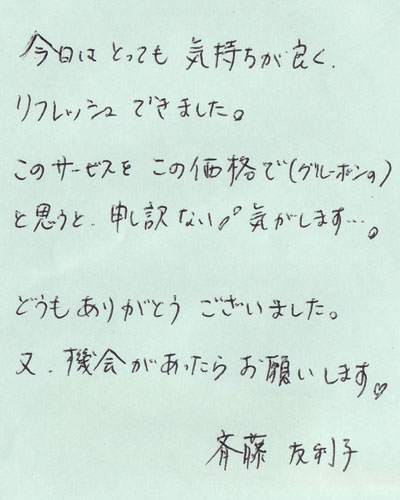 今日は とっても 気持ちが良く、
リフレッシュ できました。
このサービスを この価格で(グルーポンの)
と思うと、申し訳ない 気がします…。
どうもありがとう ございました。
又、機会があったら お願いします♡
斉藤 友利子